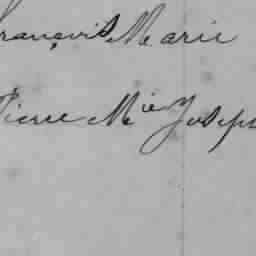 François Marie
Pierre Mie Joseph